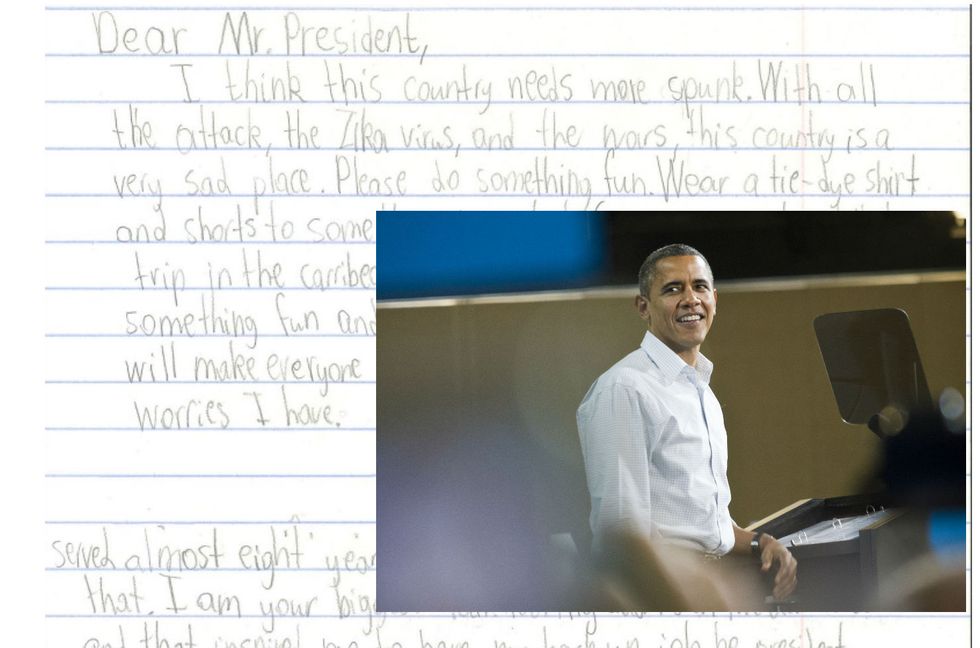 Dear Mr. President,
I think this country needs more spunk. With all
the attack, the Zika virus, and the wars, this country is a
very sad place. Please do something fun. Wear a tie-dye shirt
and shorts to some
trip in the carribe
something fun and
will make everyone
worries I have.
served almost eight year
that. I am your
and that inspired me to have my back up job be president